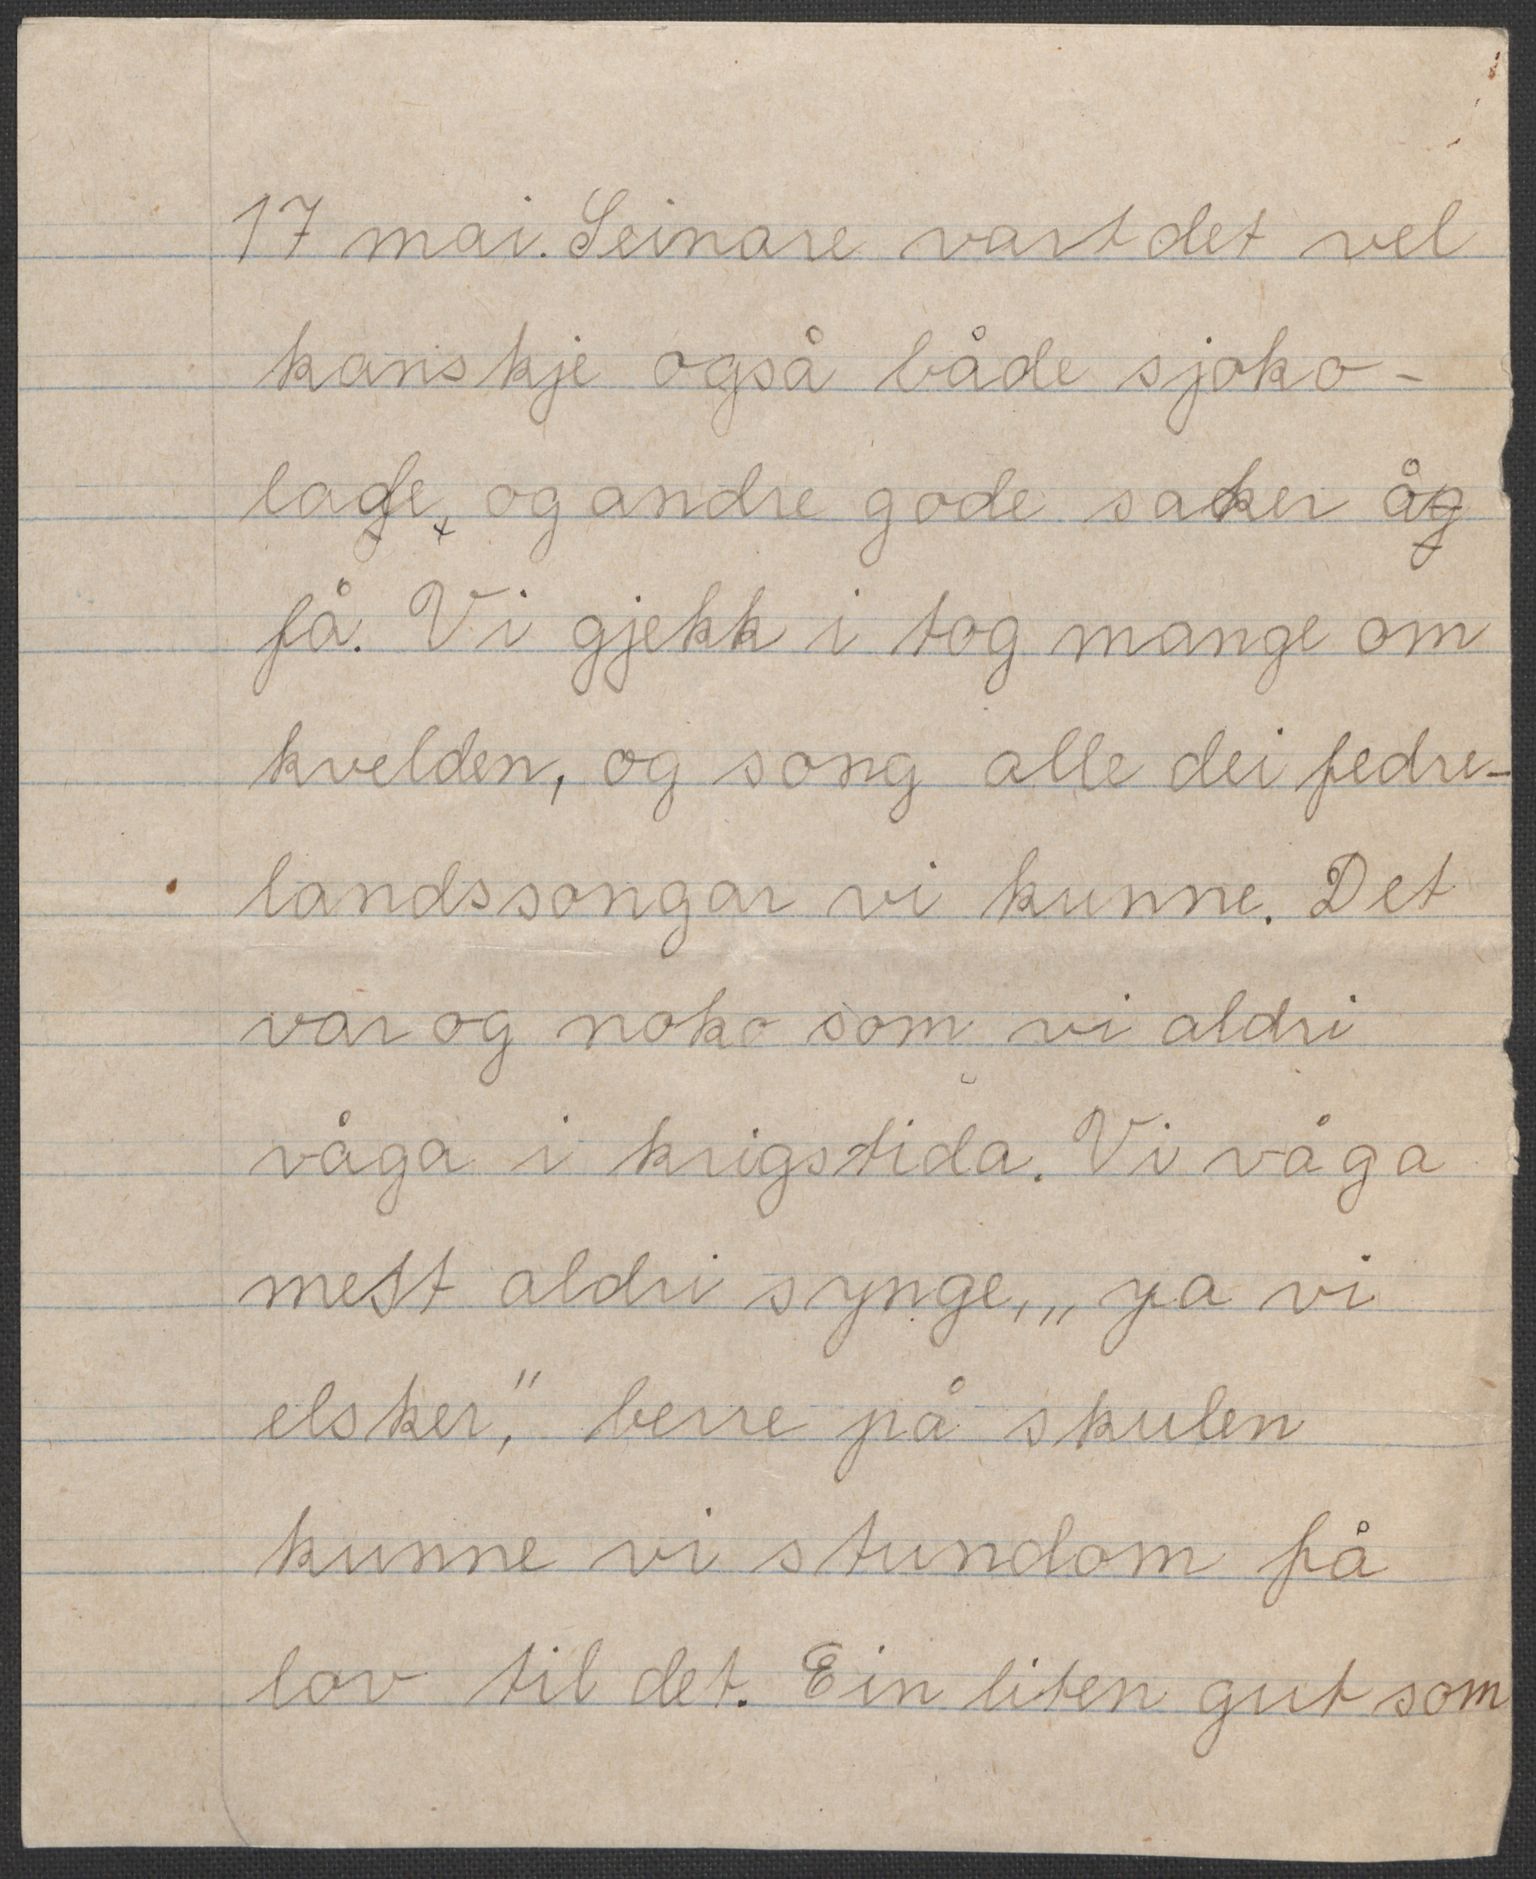 17 mai. Seinare vart det vel
kanskje også både sjoko-
lade, og andre gode saker å
få. Vi gjekk i tog mange om
kvelden, og song alle dei fedre-
landssongar vi kunne. Det
var og noko som vi aldri
våga i krigstida. Vi våga
mest aldri synge, „ ja vi
elsker," berre på skulen
kunne vi stundom få
lov til det. Ein liten gut som